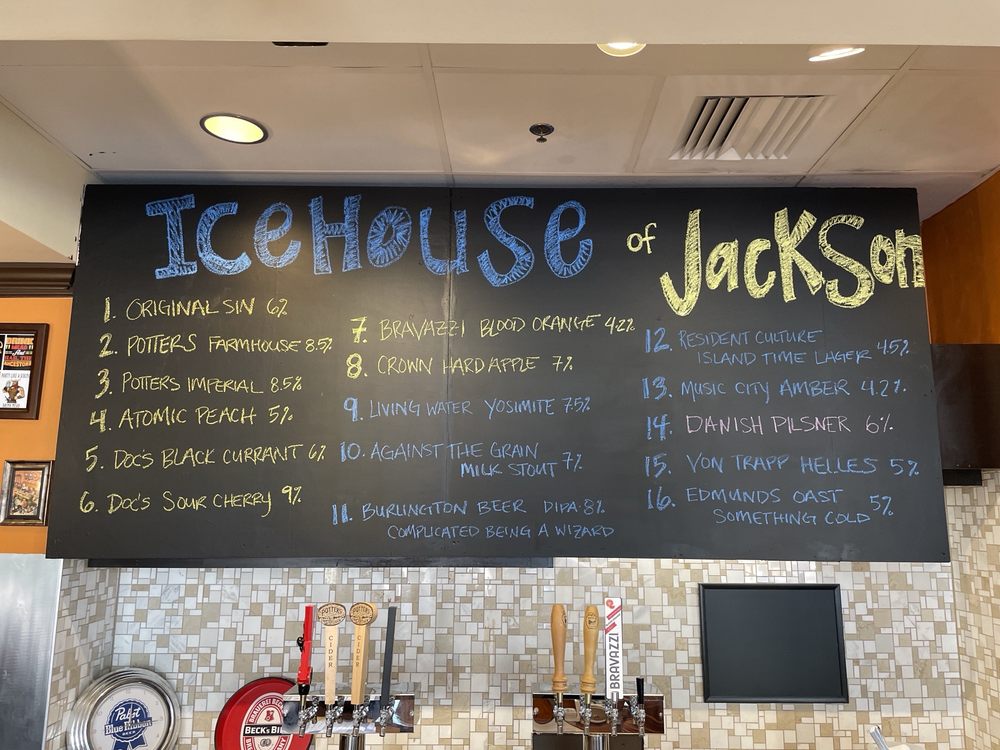 IceHouse of Jackson
1. ORIGINAL SIN 6%
2. POTTERS FARMHOUSE 8.5%
3. POTTERS IMPERIAL 8.5%
4. ATOMIC PEACH 5%
5. DOC'S BLACK CURRANT 6%
6. DOC'S SOUR CHERRY 9%
7. BRAVAZZI BLOOD ORANGE 4.2%
8. CROWN HARD APPLE 7%
9. LIVING WATER YOSIMITE 7.5%
10. AGAINST THE GRAIN
MILK STOUT 7%
11. BURLINGTON BEER DIPA 8%
COMPLICATED BEING A WIZARD
12. RESIDENT CULTURE
ISLAND TIME LAGER 4.5%
13. MUSIC CITY AMBER 4.2%
14. DANISH PILSNER 6%
15. VON TRAPP HELLES 5%
16. EDMUNDS OAST
SOMETHING COLD 5%
POTTER'S
CIDER
POTTER'S
CIDER
BRAVAZZI
Pabst
Blue Ribbon
BECK'S